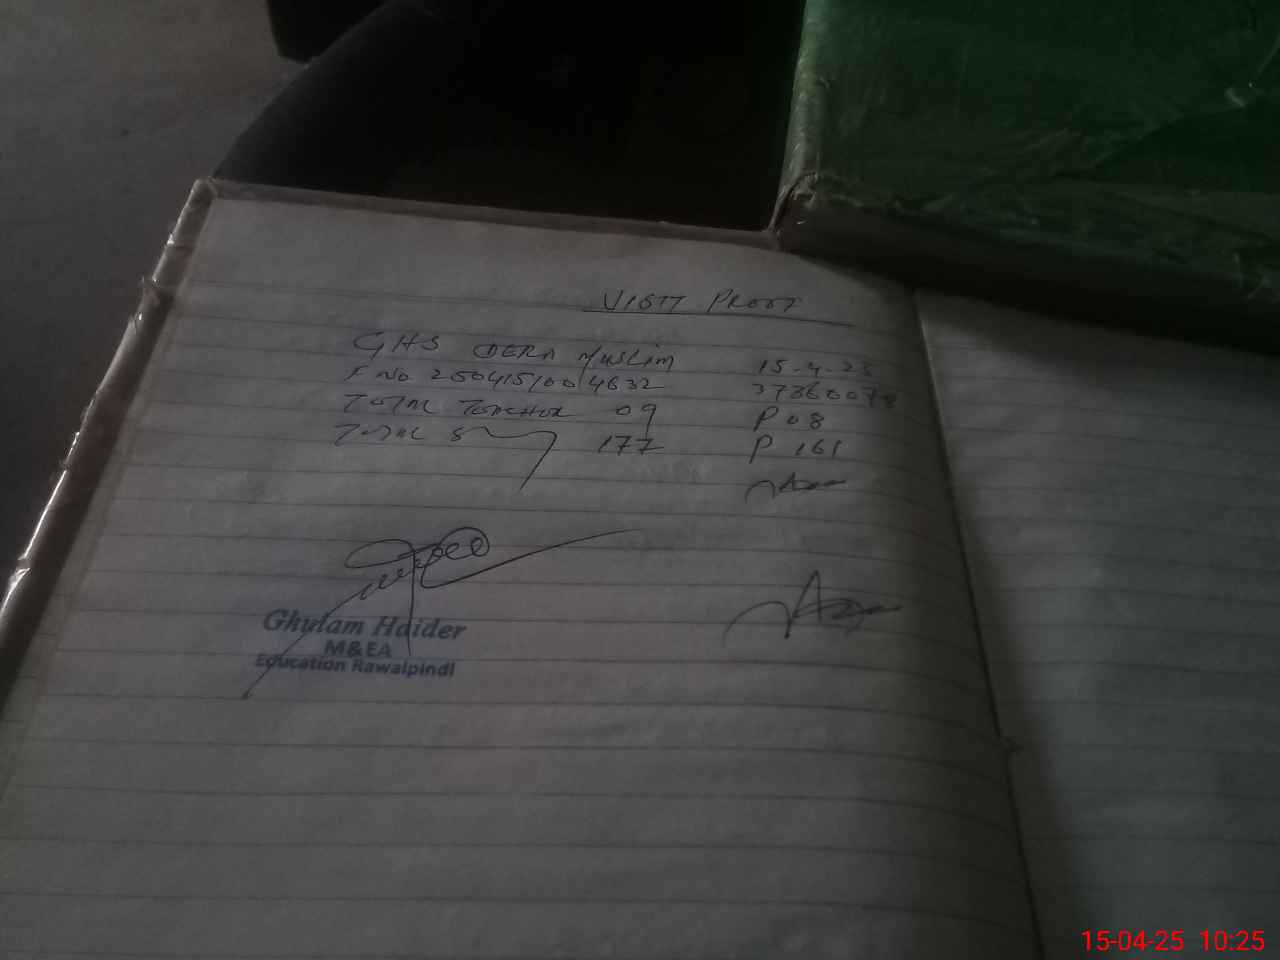 VISIT PROOF
GHS DERA Muslim 15-4-25
F No 250415100 4632 37360078
TOTAL TEACHER 09 P 08
TOTAL S 177 P 161
Ghulam Haider
M&EA
Education Rawalpindi
15-04-25 10:25